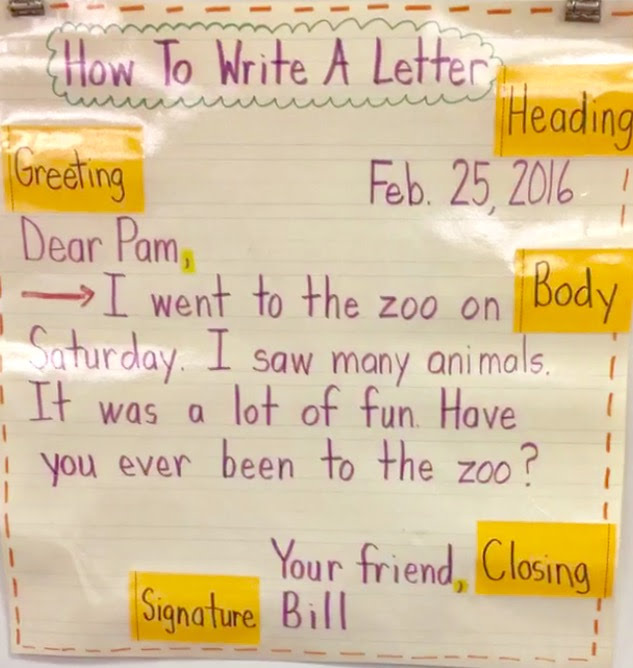 How To Write A Letter
Heading
Greeting
Feb. 25, 2016
Dear Pam,
I went to the zoo on
Body
Saturday. I saw many animals.
It was a lot of fun. Have
you ever been to the zoo?
Your friend,
Closing
Signature
Bill